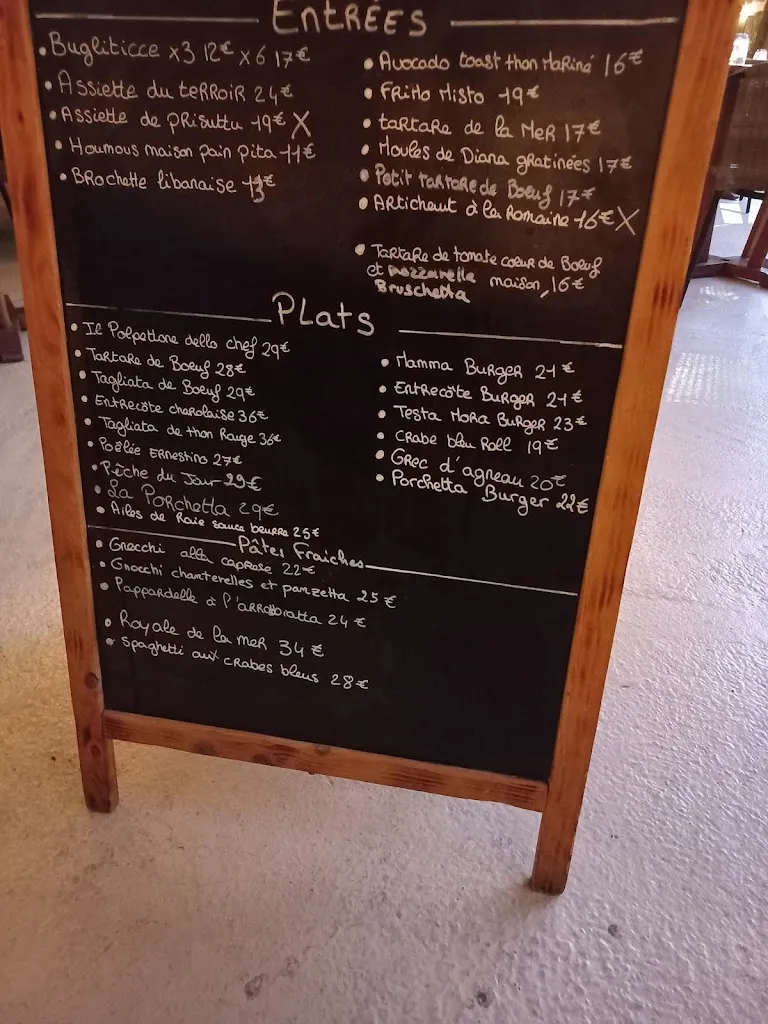 Entrées
• Bugliticce x3 12€ x6 17€
• Assiette du terroir 24€
• Assiette de prisuttu 19€ X
• Houmous maison pain pita 11€
• Brochette libanaise 13€
• Avocado toast thon mariné 16€
• Frito Misto 19€
• tartare de la Mer 17€
• Moules de Diana gratinées 17€
• Petit tartare de Boeuf 17€
• Artichaut à la Romaine 16€ X
• Tartare de tomate coeur de Boeuf
et mozzarella maison, 16€
Bruschetta
Plats
• Il Polpettone dello chef 29€
• Tartare de Boeuf 28€
• Tagliata de Boeuf 29€
• Entrecôte charolaise 36€
• Tagliata de thon Rouge 36€
• Poêlée Ernestino 27€
• Pêche du Jour 29€
• La Porchetta 29€
• Ailes de Raie sauce beurre 25€
• Mamma Burger 21€
• Entrecôte Burger 21€
• Testa Mora Burger 23€
• Crabe bleu Roll 19€
• Grec d'agneau 20€
• Porchetta Burger 22€
Pâtes Fraiches
• Gnocchi alla caprese 22€
• Gnocchi chanterelles et panzetta 25€
• Pappardelle à l'arrabiatta 24€
• Royale de la mer 34€
• Spaghetti aux crabes bleus 28€